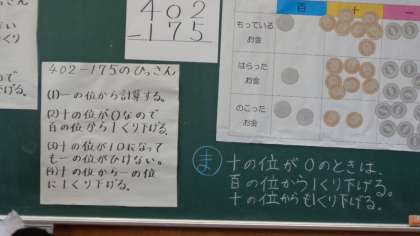 402
-175
百 十 一
もっている
お金
はらった
お金
のこった
お金
402-175のひっさん
(1)一の位から計算する。
(2)十の位が0なので
百の位から1くり下げる。
(3)十の位が10になって
も一の位がひけない。
(4)十の位から一の位
に1くり下げる。
ま 十の位が0のときは、
百の位から1くり下げる。
十の位からも1くり下げる。